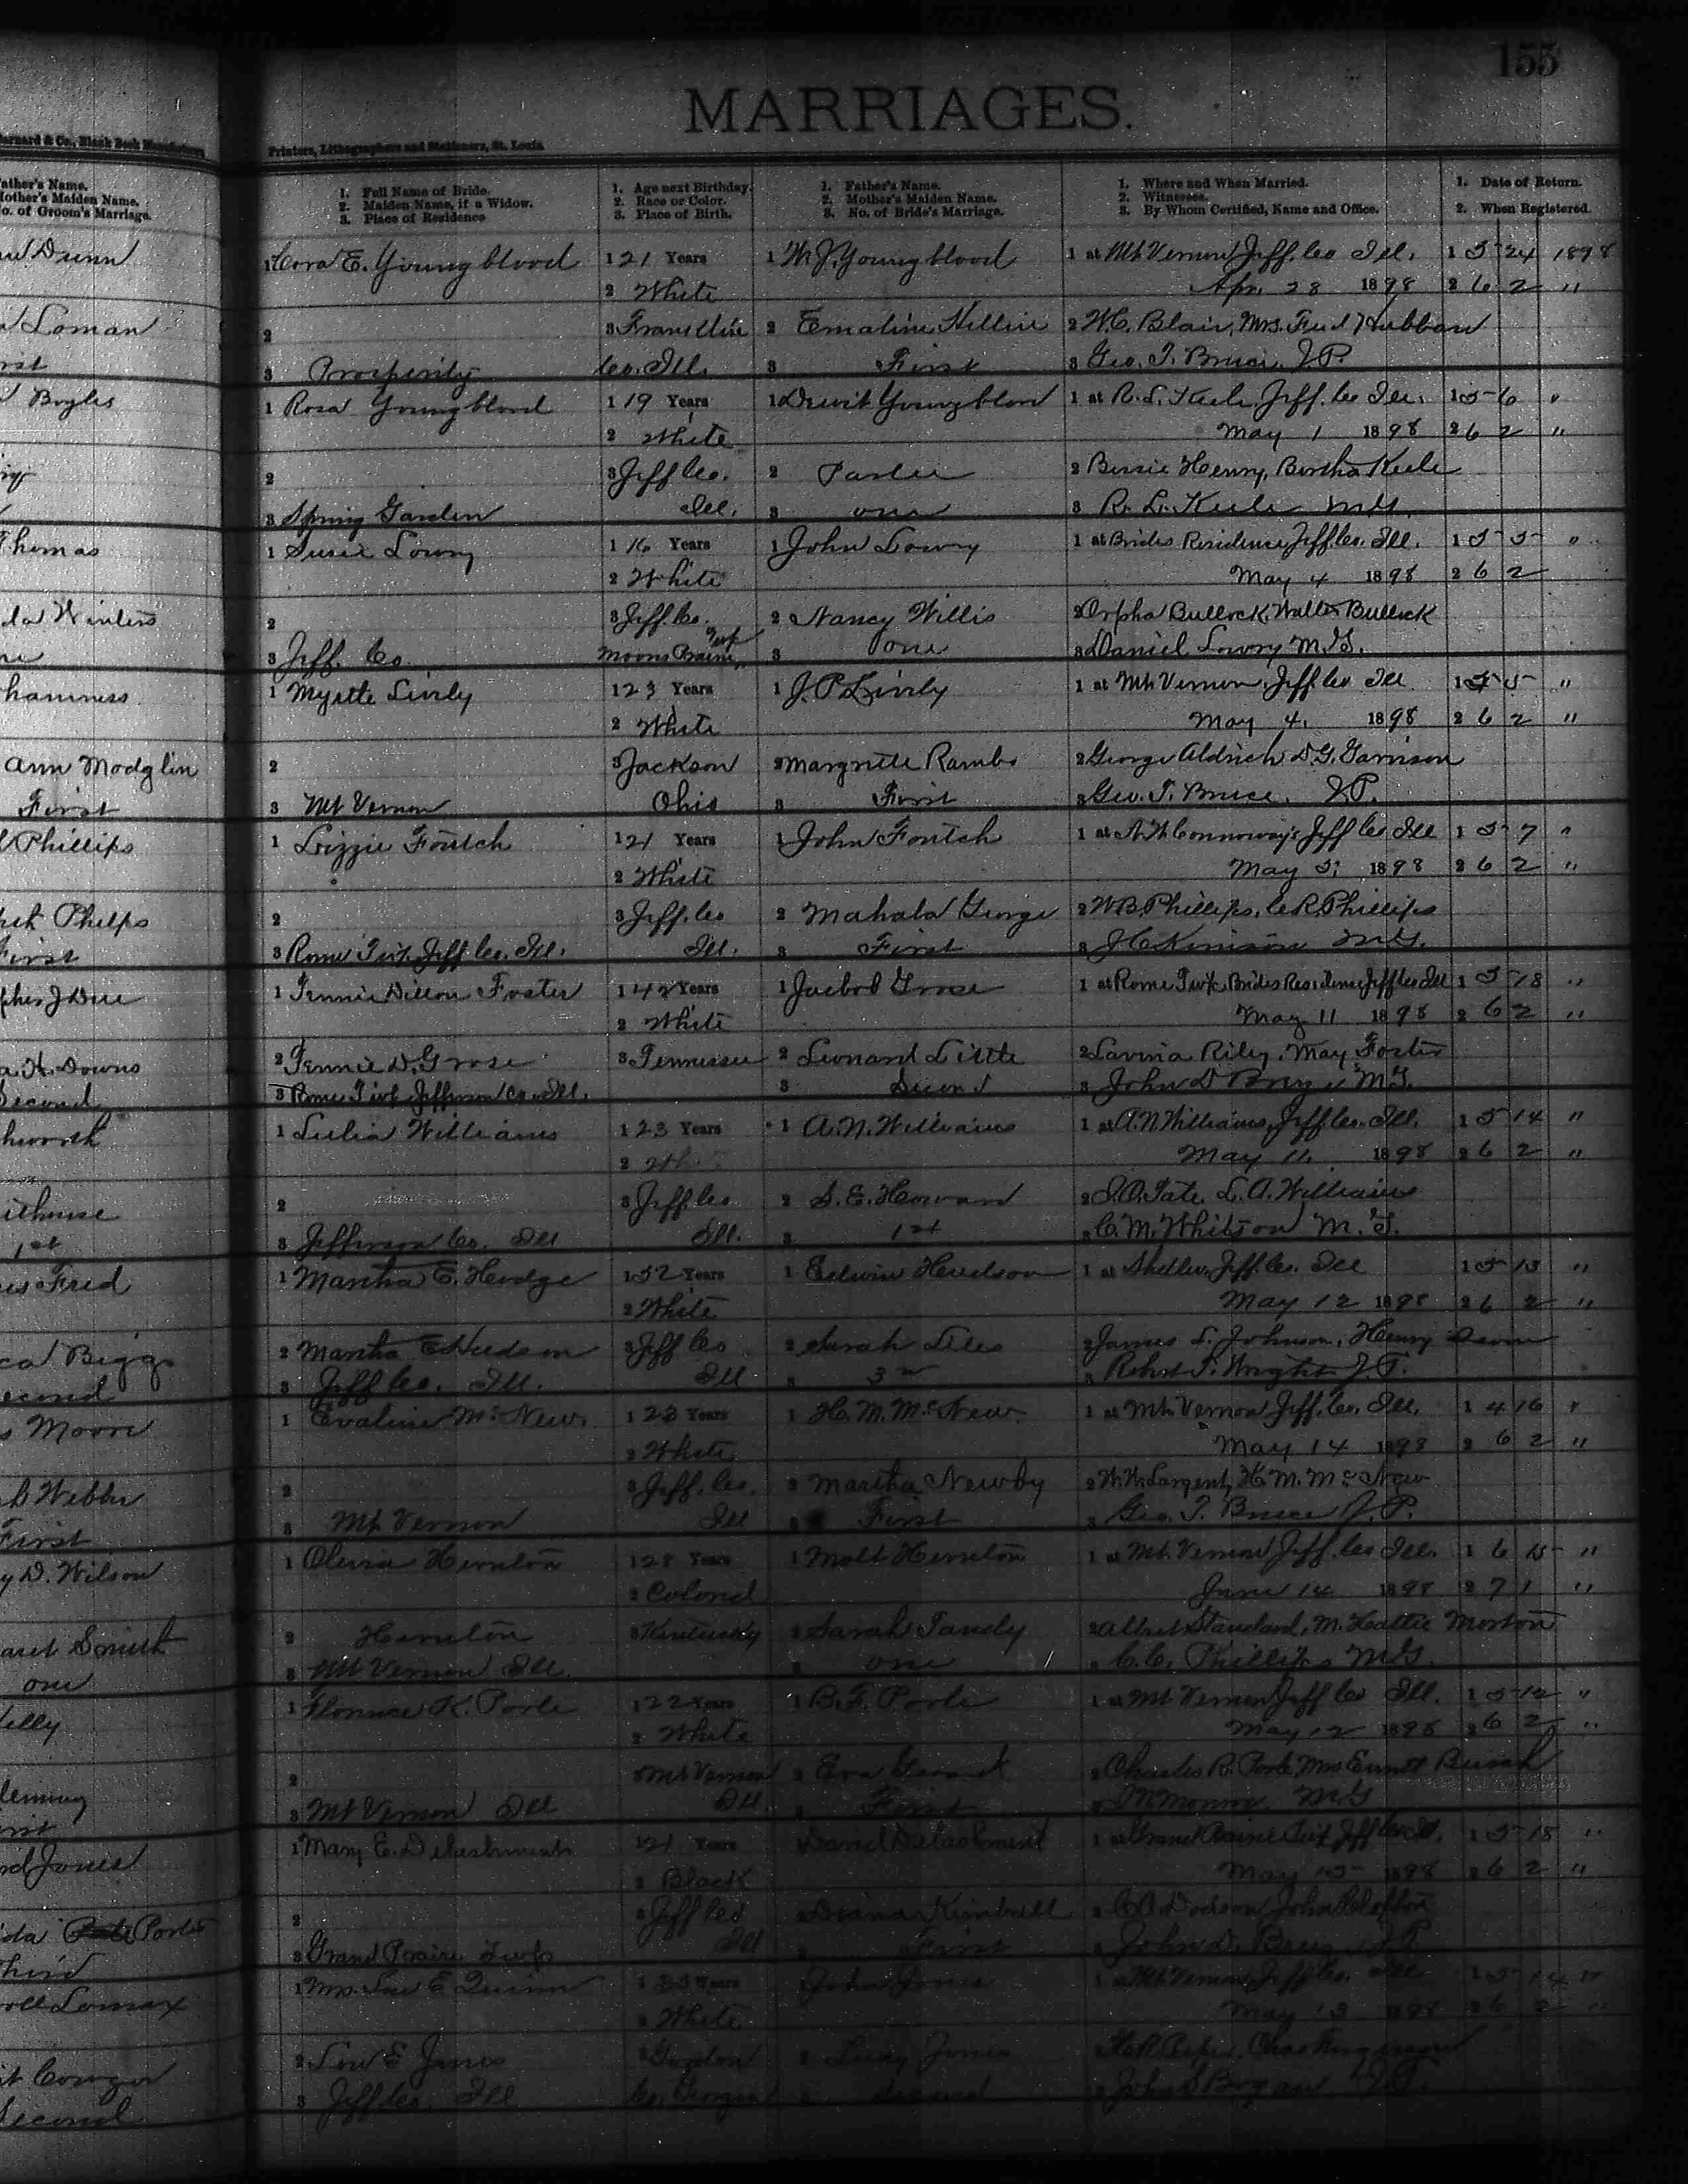 155
MARRIAGES.
Barnard & Co., Blank Book Manufacturers
Printers, Lithographers and Stationers, St. Louis
Father's Name.
Mother's Maiden Name.
No. of Groom's Marriage.
1. Full Name of Bride.
2. Maiden Name, if a Widow.
3. Place of Residence
1. Age next Birthday.
2. Race or Color.
3. Place of Birth.
1. Father's Name.
2. Mother's Maiden Name.
3. No. of Bride's Marriage.
1. Where and When Married.
2. Witnesses.
3. By Whom Certified, Name and Office.
1. Date of Return.
2. When Registered.
Dunn 1 Cora E. Youngblood 1 21 Years 1 W. J. Youngblood 1 at Mt Vernon Jeff. Co Ill. 1 5 24 1898
2 White Apr. 28 1898 2 6 2 "
Loman 2 3 Franklin 2 Emaline 2 W. C. Blair, Mrs.
3 Prosperity Co. Ill. 3 First 3 Geo. T. Bruce, J.P.
Boyles 1 Rosa Youngblood 1 19 Years 1 Dewit Youngblood 1 at R. L. Keele, Jeff. Co Ill. 1 5 6 "
2 White May 1 1898 2 6 2 "
2 3 Jeff Co. 2 2 Bessie Henry, Bertha Keele
3 Spring Garden Ill. 3 one 3 R. L. Keele M.G.
Thomas 1 Susie Lowry 1 16 Years 1 John Lowry 1 at Brides Residence Jeff. Co. Ill. 1 5 5 "
2 White May 4 1898 2 6 2
Winters 2 3 Jeff. Co. 2 Nancy Willis 2 Orpha Bullock, Walter Bullock
3 Jeff. Co. 3 one 3 Daniel Lowry M.G.
1 Myrtle Lively 1 23 Years 1 J. P. Lively 1 at Mt. Vernon, Jeff. Co Ill 1 5 5 "
2 White May 4, 1898 2 6 2 "
Ann Modglin 2 3 Jackson 2 2 George Aldrich D. G. Garrison
First 3 Mt Vernon Ohio 3 First 3 Geo. T. Bruce. J.P.
Phillips 1 Lizzie Foutch 1 21 Years 1 John Foutch 1 at Jeff Co Ill 1 5 7 "
2 White May 5, 1898 2 6 2 "
Phelps 2 3 Jeff. Co 2 Mahala George 2 W. B. Phillips, C. R. Phillips
First 3 Rome Twp. Jeff Co. Ill. Ill. 3 First 3 M.G.
1 Tennie Dillon Foster 1 42 Years 1 Jacob Grose 1 at Rome Twp. Brides Residence Jeff Co Ill 1 5 18 "
2 White May 11 1898 2 6 2 "
Downs 2 Tennie D. Grose 3 Tennessee 2 Leonard Little 2 Lavina Riley, May Foster
Second 3 Rome Twp Jefferson Co. Ill. 3 Second 3 John D
1 Williams 1 23 Years 1 A. N. Williams 1 at A. N. Williams, Jeff. Co. Ill. 1 5 14 "
2 May 11, 1898 2 6 2 "
2 3 Jeff Co 2 S. E. Howard 2 Tate, L. A. Williams
1st 3 Jefferson Co. Ill Ill. 3 1st 3 C. M. Whitson M. G.
Fred 1 Martha E. Hodge 1 52 Years 1 Edwin Hudson 1 at Jeff Co. Ill 1 5 13 "
2 White May 12 1898 2 6 2 "
Biggs 2 Martha E Hudson 3 Jeff Co 2 Sarah 2 James L. Johnson, Henry
Second 3 Jeff Co. Ill. Ill 3 3rd 3 Robert T. Wright J.P.
Moore 1 Evaline McNew. 1 23 Years 1 H. M. McNew. 1 at Mt. Vernon Jeff. Co. Ill. 1 4 16 "
2 White May 14 1898 2 6 2 "
Webber 2 3 Jeff. Co. 2 Martha Newby 2 W. W. Largent, H. M. McNew
First 3 Mt. Vernon Ill 3 First 3 Geo. T. Bruce J.P.
D. Wilson 1 Olevia Hernlon 1 28 Years 1 Hernlon 1 at Mt. Vernon Jeff. Co Ill. 1 6 15 "
2 Colored June 14 1898 2 7 1 "
Smith 2 Hernlon 3 Kentucky 2 Sarah Tandy 2 Albert Standard, M. Hattie Morton
one 3 Mt Vernon Ill. 3 one 3 C. C. Phillips M.G.
1 Florence K. Poole 1 22 Years 1 B. F. Poole 1 at Mt Vernon Jeff Co Ill. 1 5 12 "
2 White May 12 1898 2 6 2 "
2 3 Mt Vernon 2 Eva 2 Charles R. Poole, Mrs
3 Mt Vernon Ill Ill. 3 First 3 M.G
Jones 1 Mary E. 1 21 Years 1 David 1 at Grand Prairie Twp Jeff Co Ill. 1 5 18 "
2 Black May 15 1898 2 6 2 "
Porter 2 3 Jeff Co 2 Kimbrell 2 Dodson, John
Third 3 Grand Prairie Twp Ill 3 First 3 John D.
Lomax 1 Mrs. Lou E Quinn 1 35 Years 1 John Jones 1 at Mt. Vernon Jeff Co. Ill 1 5 14 "
2 White May 13 1898 2 6 2 "
2 Lou E Jones 3 Gordon 2 Jones 2
Second 3 Jeff Co. Ill Co. Georgia 3 Second 3 John